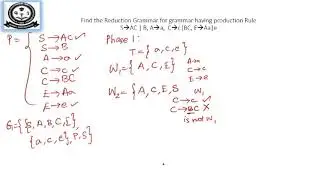 Find the Reduction Grammar for grammar having production Rule
S→AC | B, A→a, C→c|BC, E→Aa|e
P = { S → AC ✓
S → B
A → a ✓
C → c ✓
C → BC
E → Aa
E → e ✓ }
G = { {S, A, B, C, E},
{a, c, e}, P, S }
Phase 1:
T = { a, c, e }
W₁ = { A, C, E } A→a
C → c
E → e
W₂ = { A, C, E, S W₁
C → c ✓
C → BC X
is not W₁